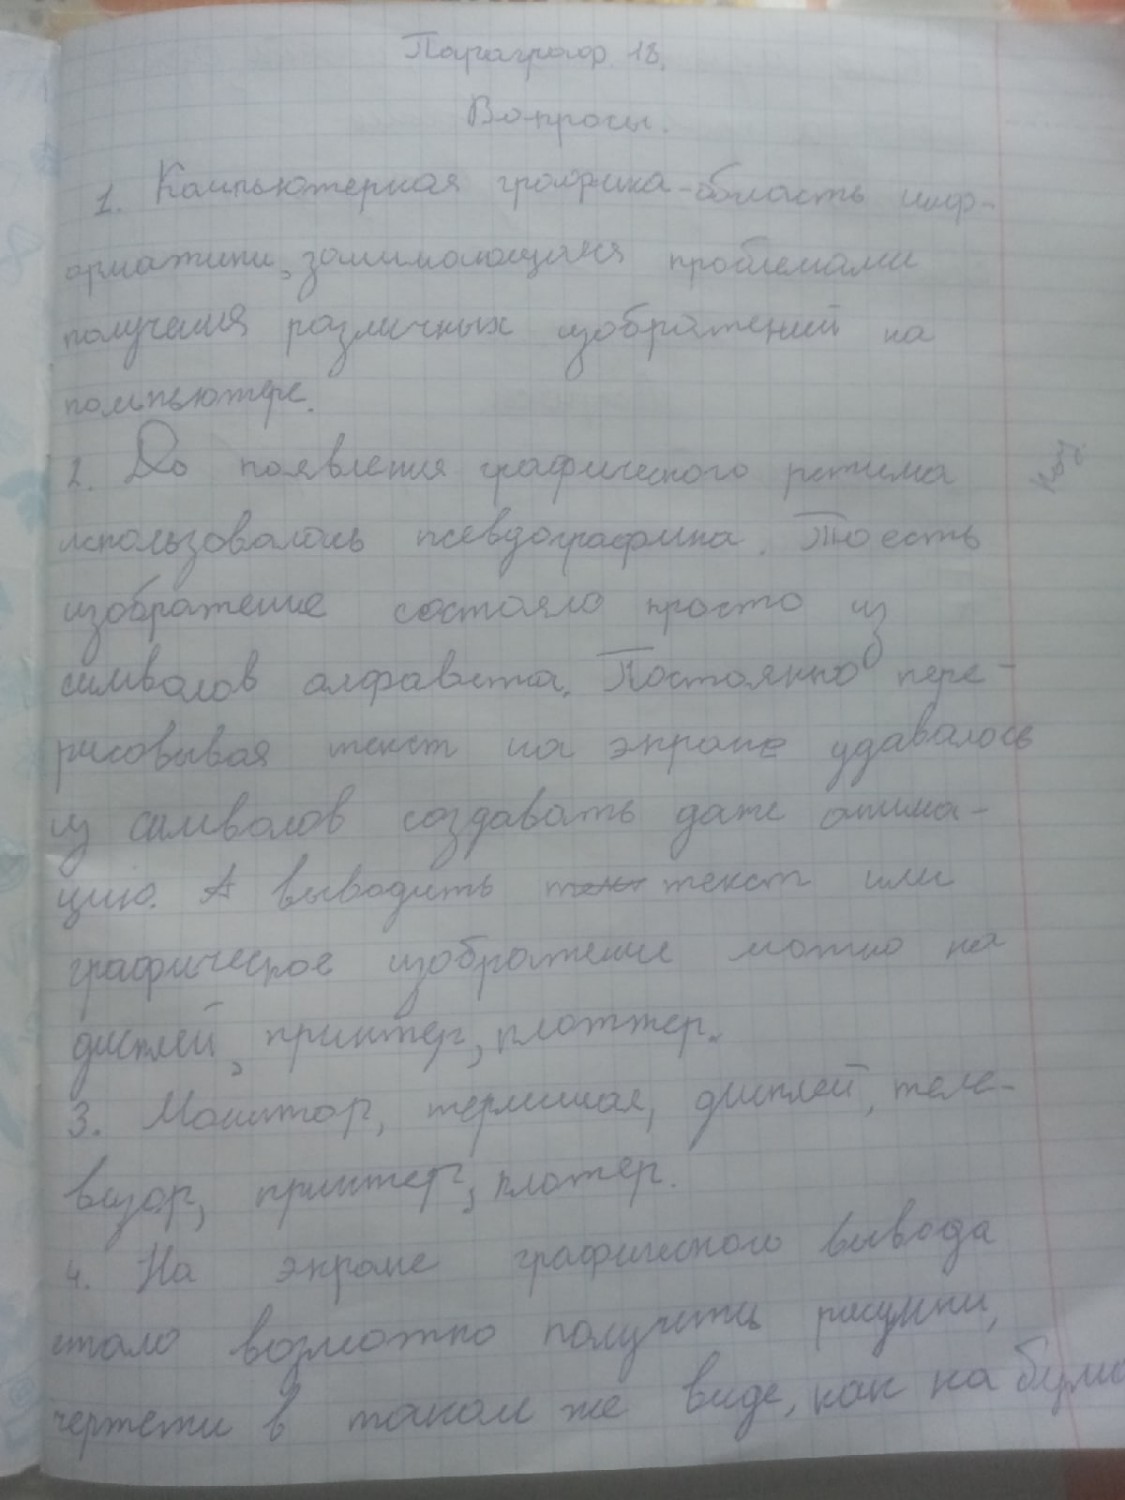 Параграф 18.
Вопросы.
1. Компьютерная графика - область инф-
орматики, занимающаяся проблемами
получения различных изображений на
компьютере.
2. До появления графического режима
использовалась псевдографика. То есть
изображение состояло просто из
символов алфавита. Постоянно пере-
рисовывая текст на экране удавалось
из символов создавать даже анима-
цию. А выводить текст или
графическое изображение можно на
дисплей, принтер, плоттер.
3. Монитор, терминал, дисплей, теле-
визор, принтер, плотер.
4. На экране графического вывода
стало возможно получить рисунки,
чертежи в таком же виде, как на